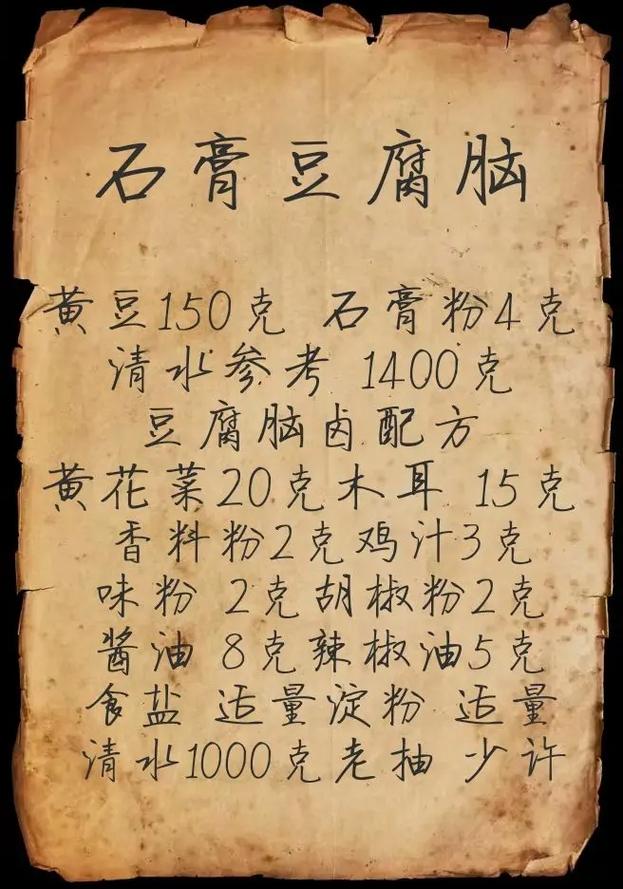 石膏豆腐脑
黄豆150克 石膏粉4克
清水参考 1400克
豆腐脑卤配方
黄花菜20克木耳 15克
香料粉2克鸡汁3克
味粉 2克胡椒粉2克
酱油 8克辣椒油5克
食盐 适量淀粉 适量
清水1000克老抽 少许